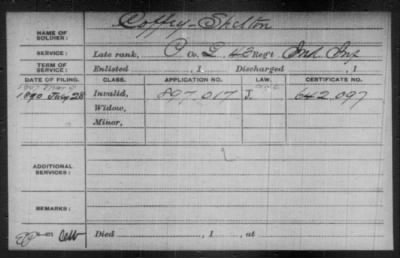 NAME OF SOLDIER: Coffey - Shelton
SERVICE: Late rank, Co. 43 Reg't Ind Inf
TERM OF SERVICE: Enlisted , 1 Discharged , 1
DATE OF FILING. CLASS. APPLICATION NO. LAW. CERTIFICATE NO.
1890 July 28 Invalid, 897.017 J. 642.097
Widow,
Minor,
ADDITIONAL SERVICES:
REMARKS:
Died , 1 , at